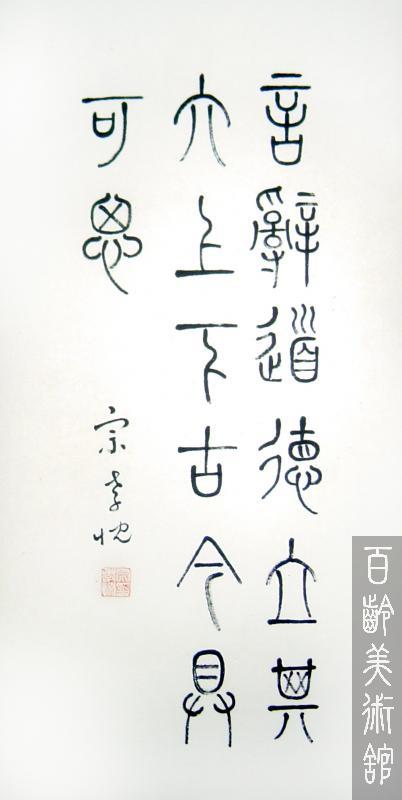 言辭道德立其
大上下古今具
可思
宗孝忱
百齡美術舘